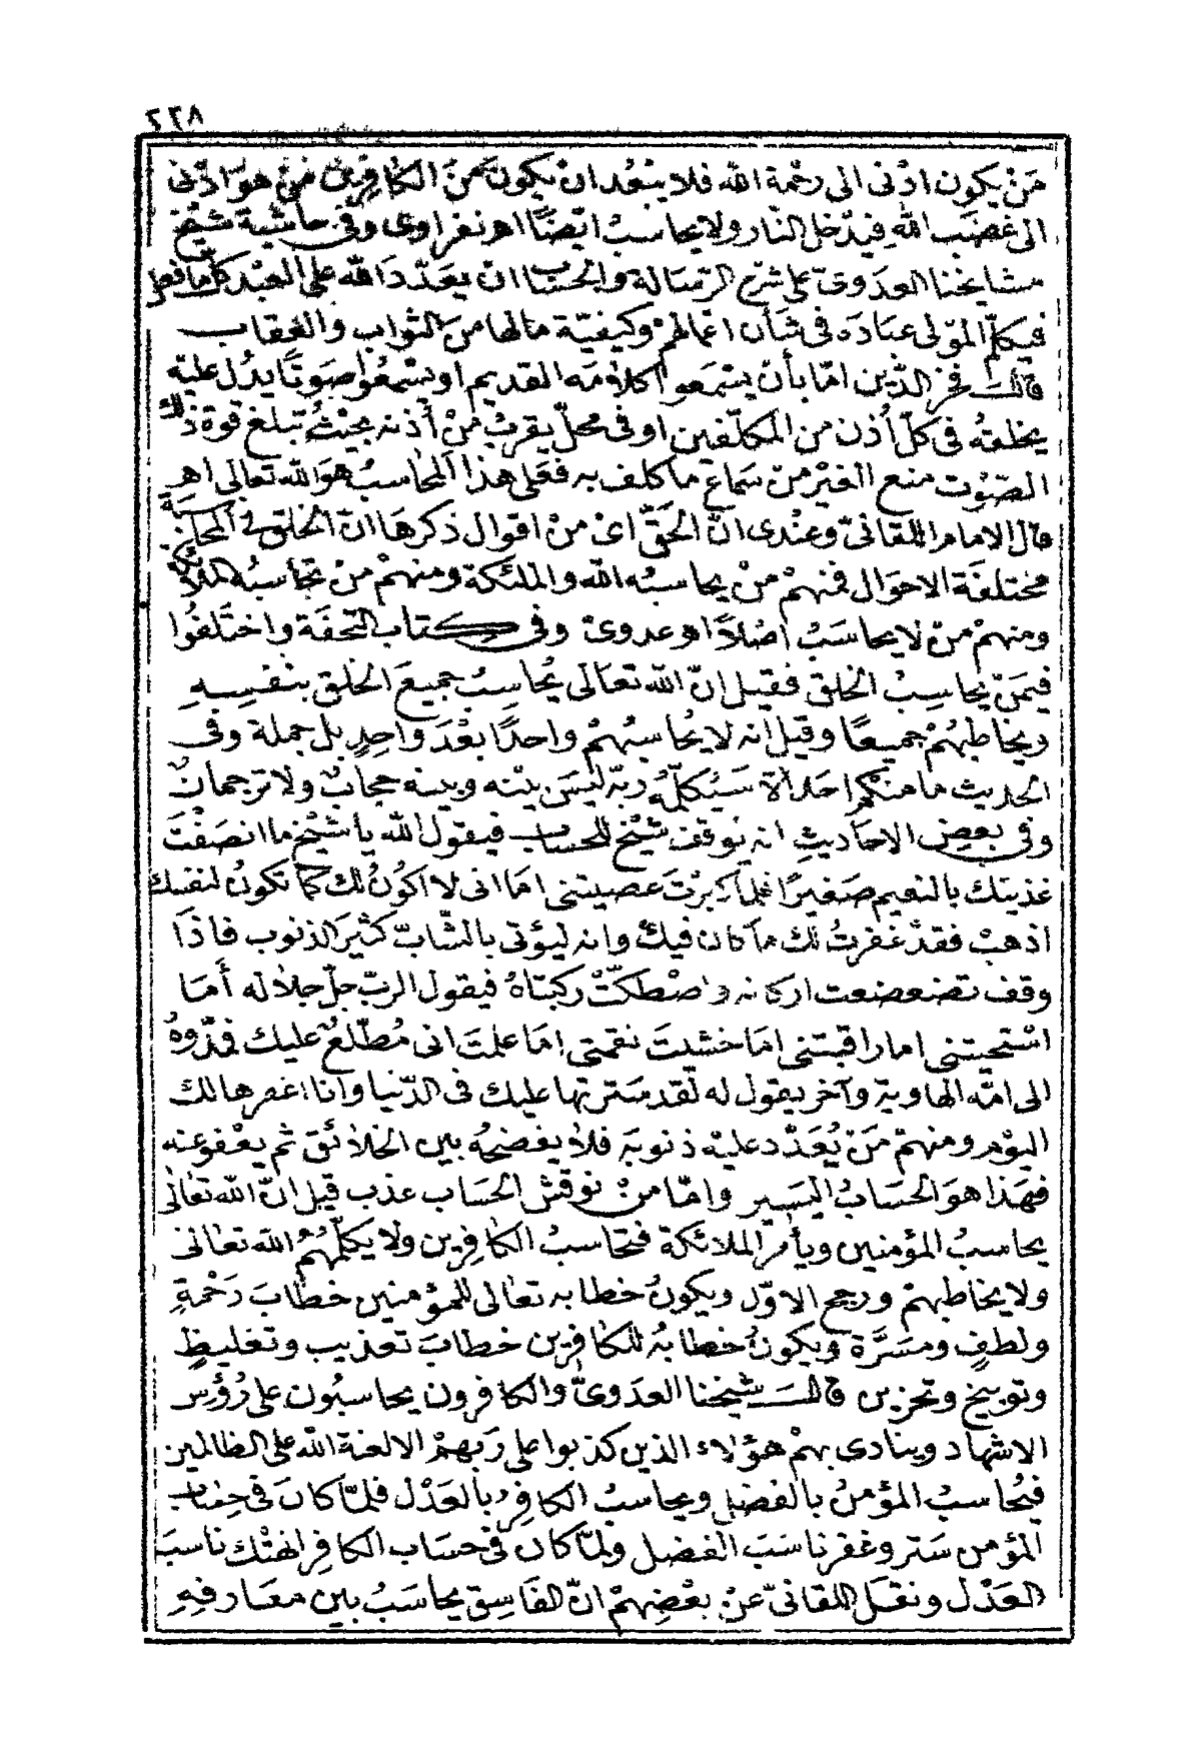 ٢٢٨
مَنْ يكون ادْنى الى رحْمة الله فلا يبْعُد انْ يكونَ مَنَ الكافِرين مَنْ هوَ ادْنى
الى غضَب الله فيدْخل النار ولا يحاسبُ ايْضًا اهـ نفراوى وفى حاشية شيْخ
مشايخنا العدَوىّ على شرْح الرّسَالة والحسَاب انْ يعَدّدَ الله على العبْد كلّ ما فعل
فيكلّم المَوْلى عبَادَه فى شأن اعْمالهمْ وكيْفيّة مالها منَ الثواب والعِقاب
قالَ فخر الدّين امّا بأنْ يسْمَعوا كلامَه القديم او يسْمعُوا صَوتًا يدُل عليْه
يخلقهُ فى كلّ أُذن من المكلّفين او فى محلّ يقربُ منْ أذنه بحيْثُ تبلغ قوة ذلك
الصّوْت منع الغيْر منْ سَماع ما كلف به فعَلى هذا المحاسبُ هوَ الله تعالى اهـ
قال الامام اللقانىّ وعنْدى انّ الحَقّ اىْ منْ اقوال ذكرهَا انّ الخلق فى المحاسبة
مختلفَة الاحوَال فمنهمْ منْ يحاسبُه الله والملئكة ومنهمْ منْ تحاسبُه الملائكة
ومنهمْ منْ لا يحاسَبُ اصْلًا اهـ عدوىْ وفى كتاب التحفَة واختَلفُوا
فيمَنْ يحاسِبْ الخلق فقيل انّ الله تعَالى يُحاسِبُ جميعَ الخلق بنفسِهِ
ويخاطبهُمْ جميعًا وقيل انه لا يحُاسبُهمْ واحدًا بعْدَ واحِدٍ بل جملة وفى
الحديث ما منكم احَد الّا سَيُكلّمهُ ربّه ليْسَ بيْنه وبينه حجابٌ ولا ترجمانٌ
وفى بعض الاحَاديثِ انه يُوقف شيْخ للحساب فيقول الله يا شيْخ ما انصَفْتَ
غذيتك بالنعيم صَغيرًا فلمّا كبرْتَ عصيتنى امَا انى لا اكُونُ لك كما تكونُ لنفسك
اذهبْ فقدْ غفرتُ لك ما كان فيكْ وانه ليؤتى بالشّابّ كثيرَ الذنوب فاذَا
وقف تضعضعت اركانه واصْطكّتْ ركبتاهُ فيقول الربّ جلّ جلاله أمَا
اسْتحيتنى اما راقبتنى امَا خشيتَ نقمتى امَا علمتَ انى مُطّلعٌ عليك خذُوهُ
الى امّه الهاوية وآخر يقول له لَقد سَترتها عليك فى الدّنيا وانا اغفرها لك
اليوْم ومنهمْ مَنْ يُعَدّد عليْه ذنوبَه فلا يفضحهُ بين الخلائق ثم يعْفو عنه
فهَذا هوَ الحسَابُ اليَسير وامّا منْ نوقش الحسَاب عذب قيل انّ الله تعَالى
يحاسبُ المؤمنين ويأمر الملائكة فتحاسبُ الكافِرين ولا يكلّمهُمُ الله تعَالى
ولا يخاطبهمْ ورجح الاوّل ويكونُ خطابه تعَالى للمؤمنين خطَابَ رَحْمَةٍ
ولطفٍ ومسَرَّة ويكونُ خطابُه للكافرين خطابَ تعذيب وتغليظٍ
وتوبيخ وتحزين قالَ شيخنا العدَوىّ والكافرون يحاسبُون على رُؤُس
الاشهاد وينادى بهمْ هؤلاء الذين كذبوا على رَبهمْ الا لعنة الله على الظالمين
فيُحاسبُ المؤمنُ بالفضل ويحاسبُ الكافِر بالعَدْل فلمّا كانَ فى حِسَاب
المؤمن سَتر وغفر ناسَبَ الفضل ولمّا كان فى حسَاب الكافِر الهتْك ناسَبَ
العَدْل ونقَل اللقانىّ عنْ بعْضِهمْ انّ الفَاسِق يحاسَبُ بين معَارفِهِ